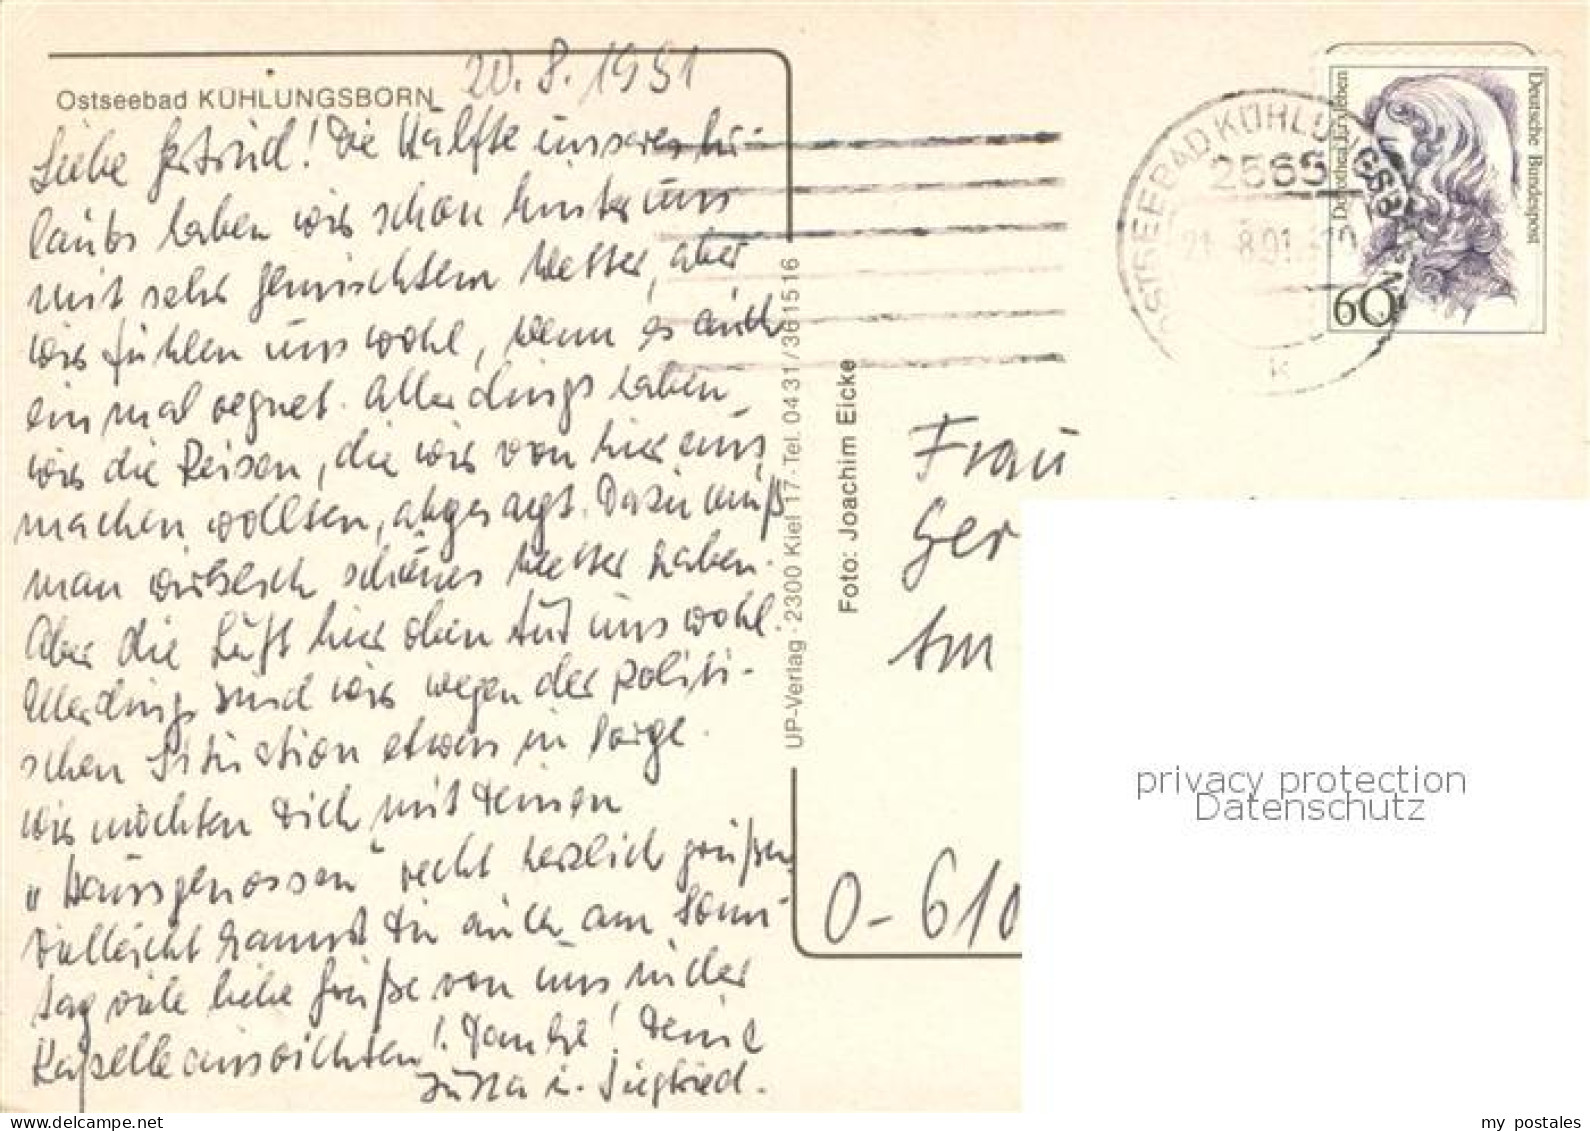 Ostseebad KÜHLUNGSBORN
20.8.1991
Liebe Gertrud! Die Hälfte unseres Ur-
laubs haben wir schon hinter uns
mit sehr gemischtem Wetter, aber
wir fühlen uns wohl, wenn es auch
einmal regnet. Allerdings haben
wir die Reisen, die wir von hier aus
machen wollten, abgesagt. Dazu muß
man wirklich schönes Wetter haben.
Aber die Luft hier oben tut uns wohl.
Allerdings sind wir wegen der politi-
schen Situation etwas in Sorge.
Wir möchten Dich mit Deinen
„Hausgenossen“ recht herzlich grüßen.
Vielleicht kannst Du auch am Sonn-
tag viele liebe Grüße von uns in der
Kapelle ausrichten! Danke! Deine
Jutta u. Siegfried.
UP-Verlag · 2300 Kiel 17 · Tel. 0431/361516
Foto: Joachim Eicke
OSTSEEBAD KÜHLUNGSBORN
2565
21.-8.91
K
Deutsche Bundespost
Dorothea Erxleben
60
Frau
Ger
Am
O-610
privacy protection
Datenschutz
my postales